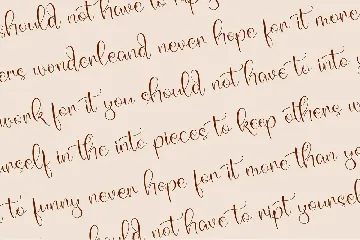 should not have to rip y
ers wonderleand never hope for it more
work for it you should not have to into y
urself in the into pieces to keep others w
to funny never hope for it more than yo
should not have to ript yoursel